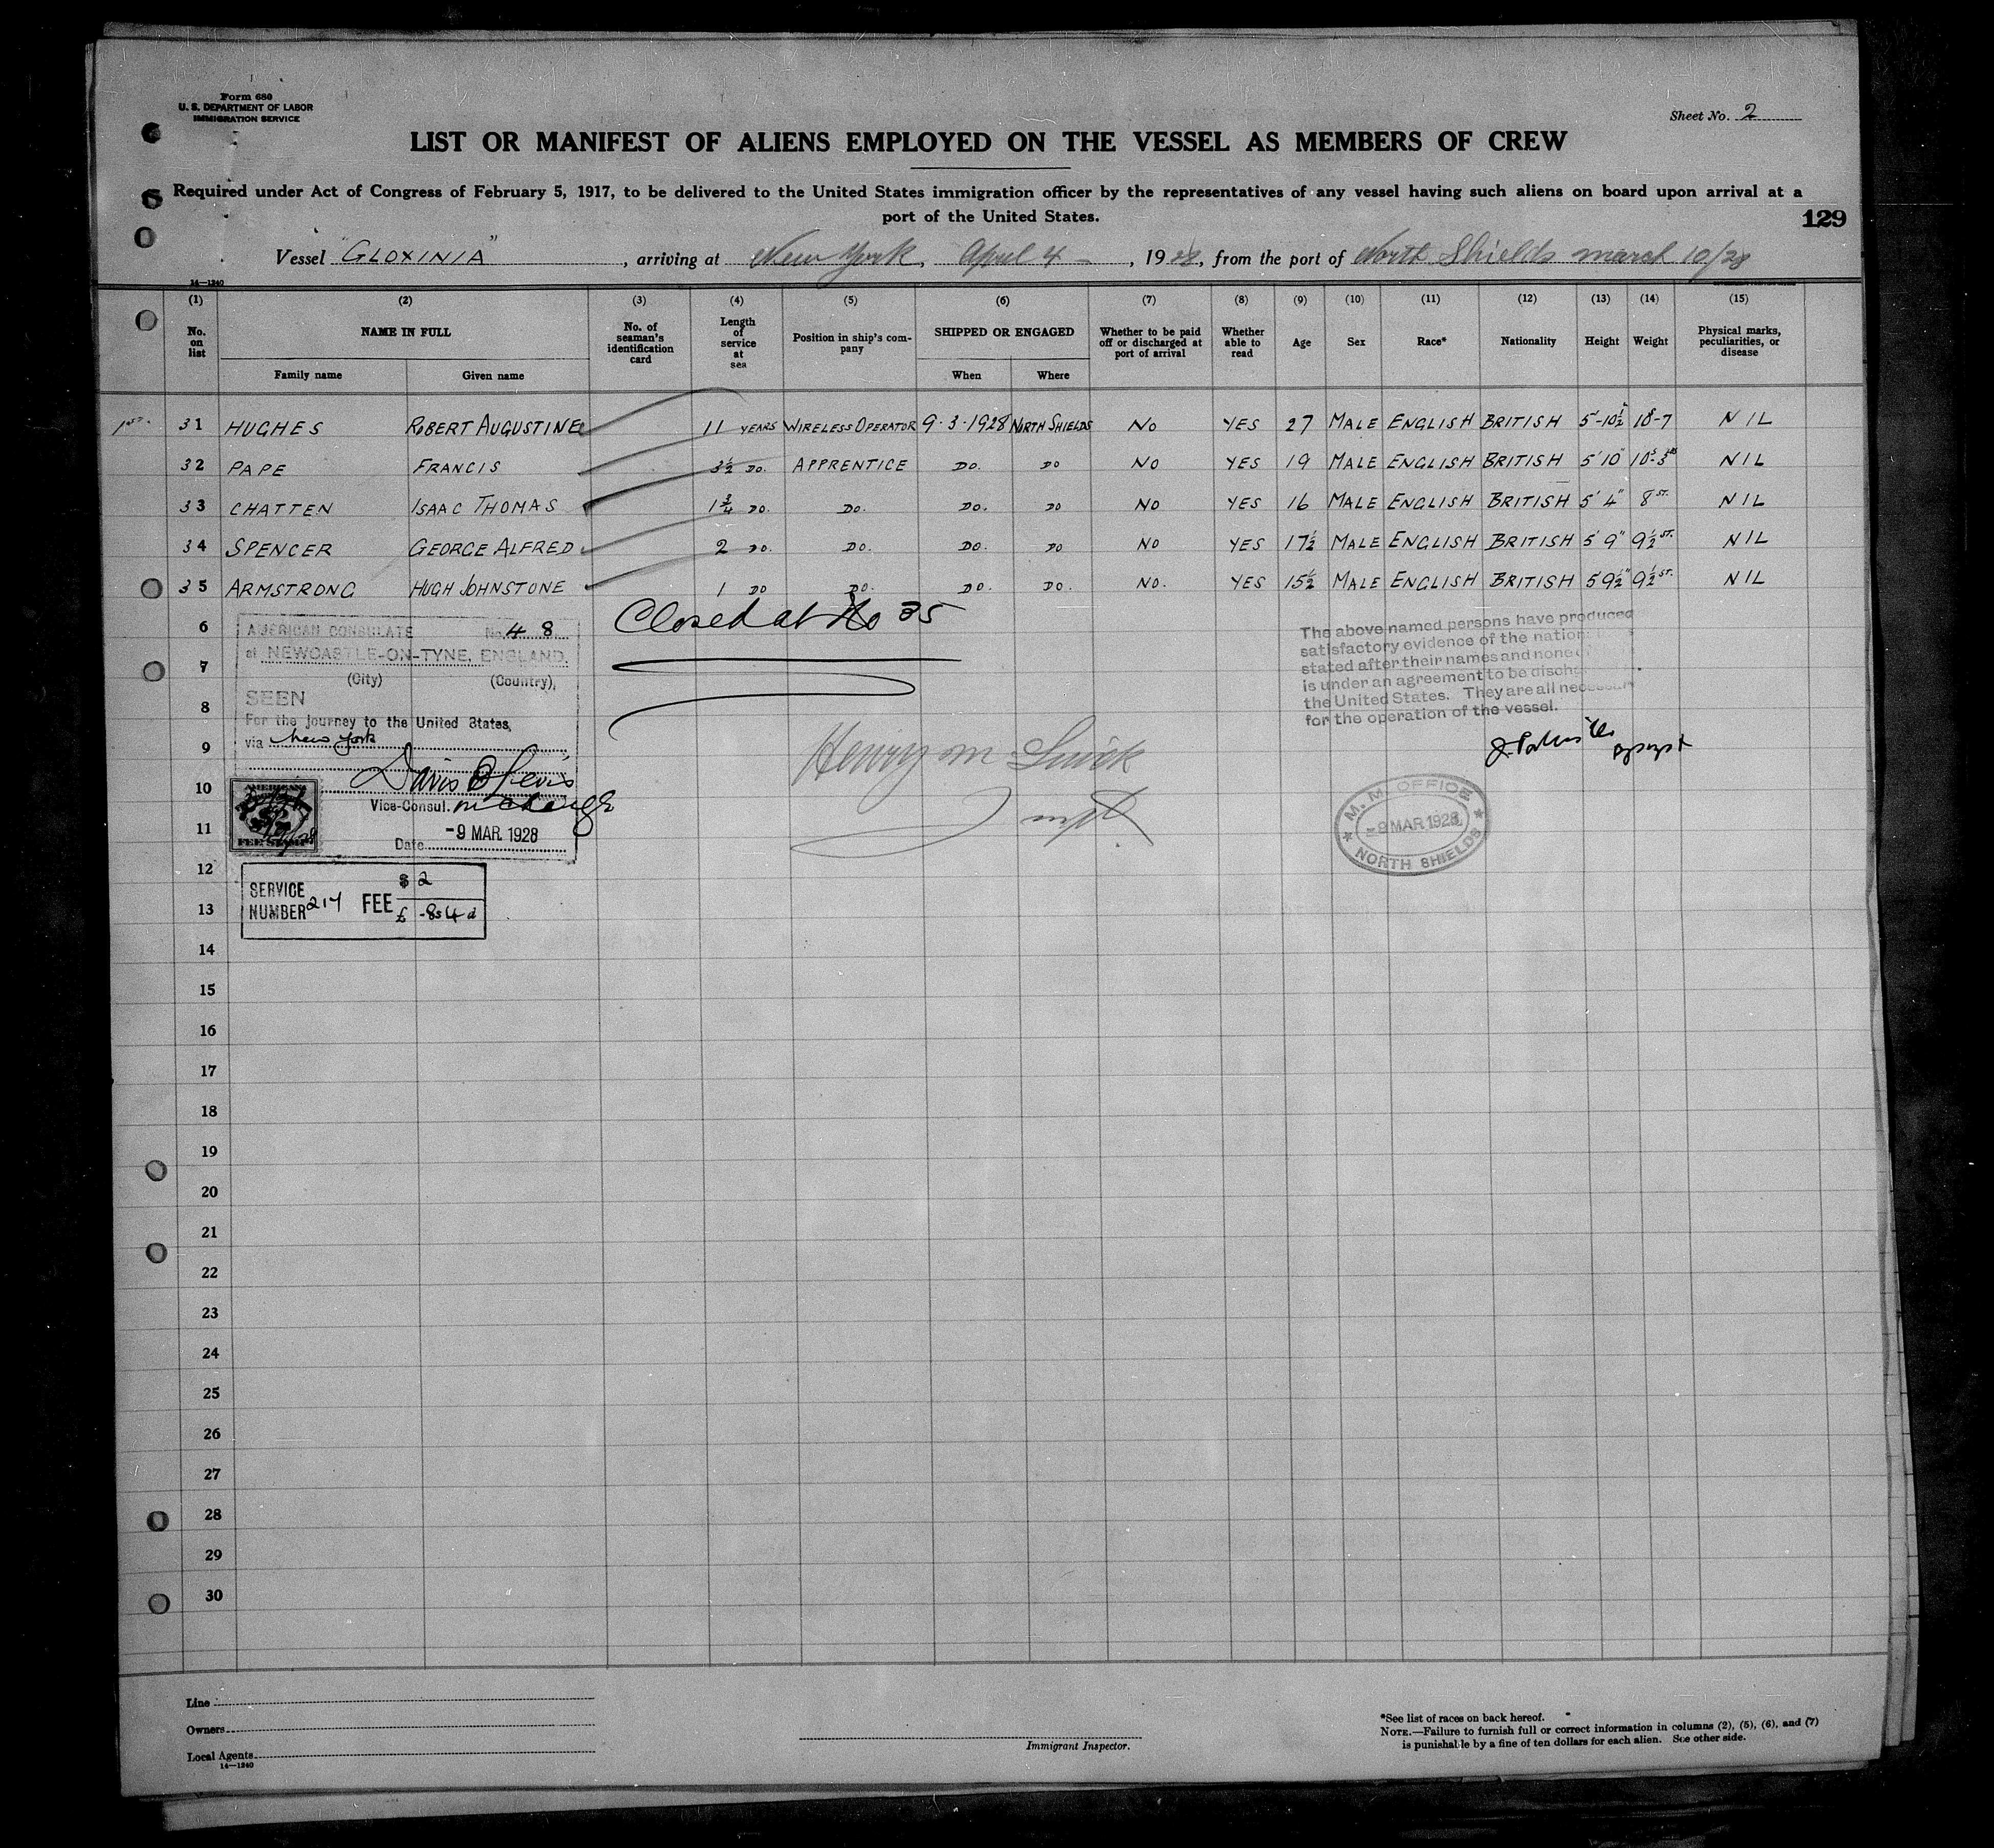 Form 680
U. S. DEPARTMENT OF LABOR
IMMIGRATION SERVICE
Sheet No. 2
LIST OR MANIFEST OF ALIENS EMPLOYED ON THE VESSEL AS MEMBERS OF CREW
Required under Act of Congress of February 5, 1917, to be delivered to the United States immigration officer by the representatives of any vessel having such aliens on board upon arrival at a
port of the United States.
129
Vessel "GLOXINIA", arriving at New York, April 4, 1928, from the port of North Shields march 10/28
14—1240
(1) (2) (3) (4) (5) (6) (7) (8) (9) (10) (11) (12) (13) (14) (15)
No. on list NAME IN FULL No. of seaman's identification card Length of service at sea Position in ship's company SHIPPED OR ENGAGED Whether to be paid off or discharged at port of arrival Whether able to read Age Sex Race* Nationality Height Weight Physical marks, peculiarities, or disease
Family name Given name When Where
1st. 31 HUGHES ROBERT AUGUSTINE 11 YEARS WIRELESS OPERATOR 9.3.1928 NORTH SHIELDS NO YES 27 MALE ENGLISH BRITISH 5'-10½" 10-7 NIL
32 PAPE FRANCIS 3½ DO. APPRENTICE DO. DO NO YES 19 MALE ENGLISH BRITISH 5'10" 10-3 NIL
33 CHATTEN ISAAC THOMAS 1¾ DO. DO. DO. DO NO YES 16 MALE ENGLISH BRITISH 5'4" 8 ST. NIL
34 SPENCER GEORGE ALFRED 2 DO. DO. DO. DO NO YES 17½ MALE ENGLISH BRITISH 5'9" 9½ ST. NIL
35 ARMSTRONG HUGH JOHNSTONE 1 DO DO. DO. DO. NO. YES 15½ MALE ENGLISH BRITISH 5'9½" 9½ ST. NIL
Closed at No 35
6
7
8
9
10
11
12
13
14
15
16
17
18
19
20
21
22
23
24
25
26
27
28
29
30
AMERICAN CONSULATE No. 48
at NEWCASTLE-ON-TYNE, ENGLAND.
(City) (Country),
SEEN
For the journey to the United States,
via New York
Vice-Consul.
Date -9 MAR. 1928
AMERICAN
FEE STAMP
SERVICE NUMBER 217 FEE $ 2
£ -8s 4d
Henry m
The above named persons have produced
satisfactory evidence of the
stated after their names and none of
is under an agreement to be
the United States. They are all necessary
for the operation of the vessel.
M. M. OFFICE
-9 MAR 1928
NORTH SHIELDS
Line
Owners
Local Agents
14—1240
Immigrant Inspector.
*See list of races on back hereof.
NOTE.—Failure to furnish full or correct information in columns (2), (5), (6), and (7)
is punishable by a fine of ten dollars for each alien. See other side.